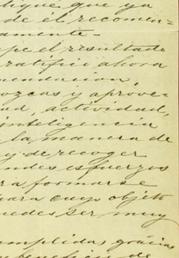 tique que ya
de el recomen-
damente.-
pe el resultado
ratifico ahora
mendacion,
ozcas y aprove-
ud, actividad,
inteligencia
la manera de
y de recoger
andes esfuerzos
ra formarse
para cuyo objeto
uedes ser muy
umplidas gracias
beneficio de